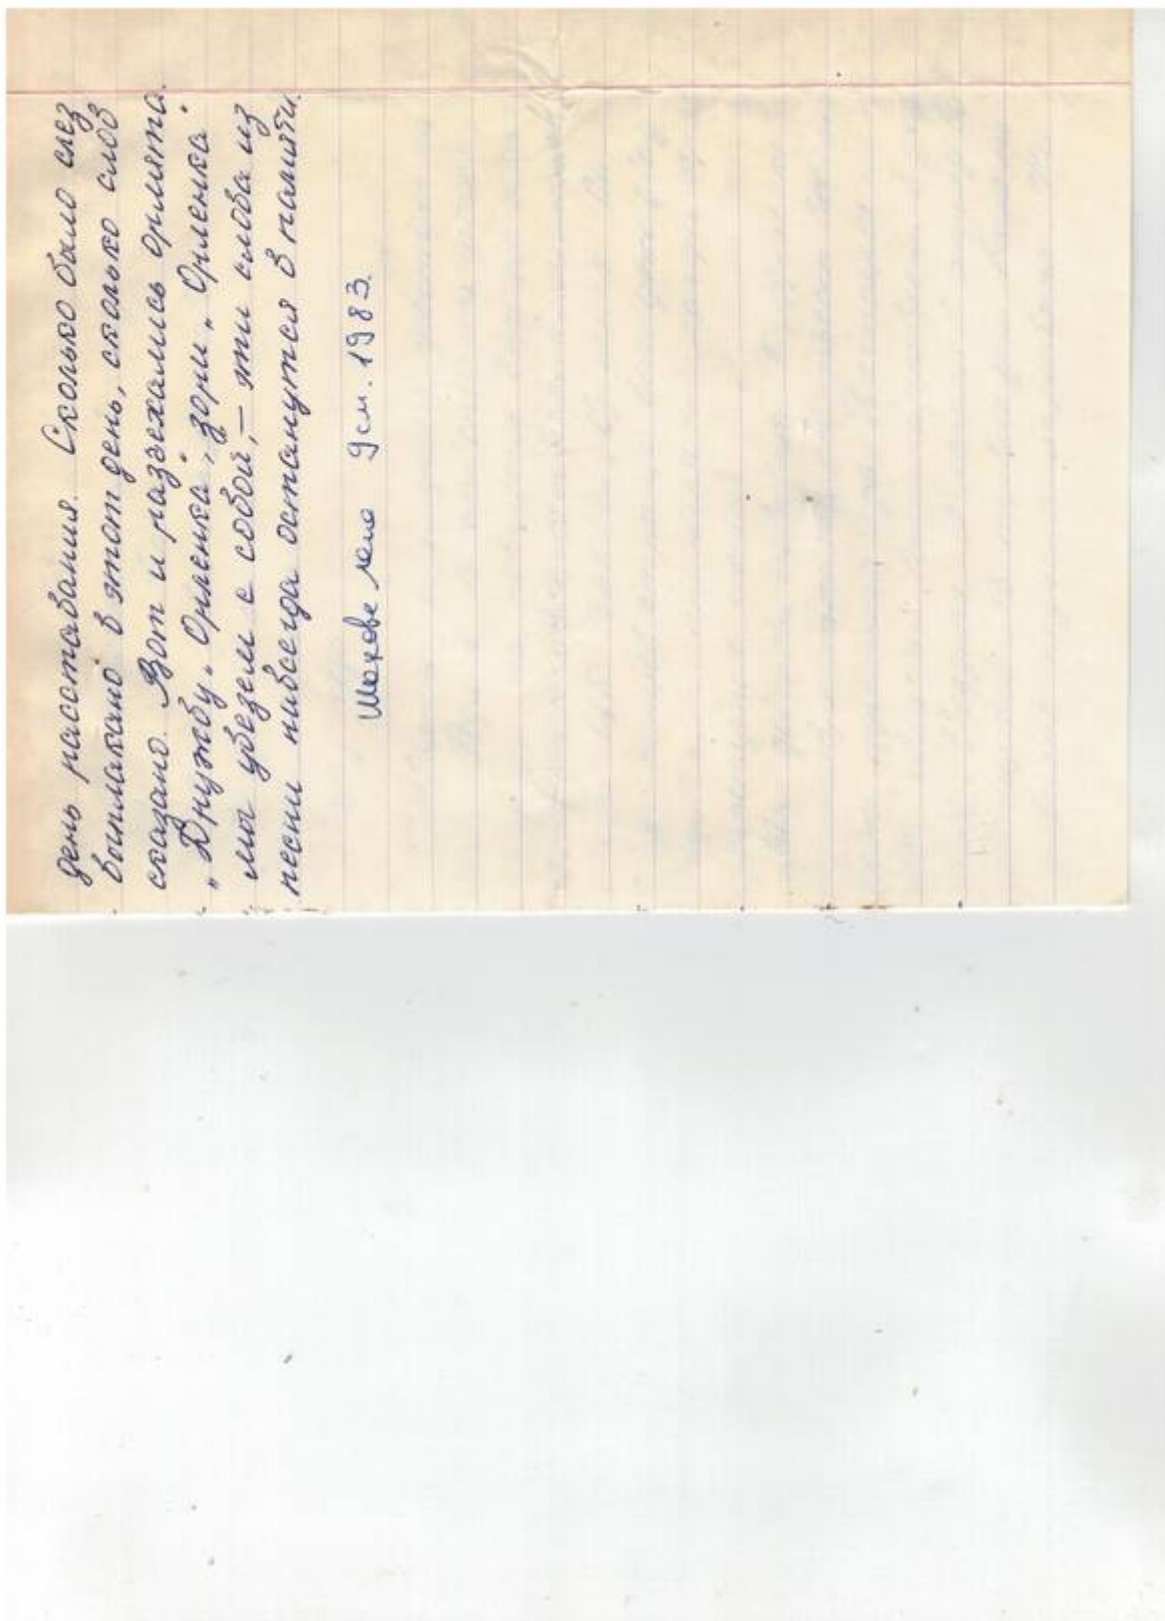 день расставания. Сколько было слез
выплакано в этот день, сколько слов
сказано. Вот и разъехались орлята.
„Дружбу „Орленка", зори „Орленка"
мы увезем с собой," – эти слова из
песни навсегда останутся в памяти.
9 см. 1983.